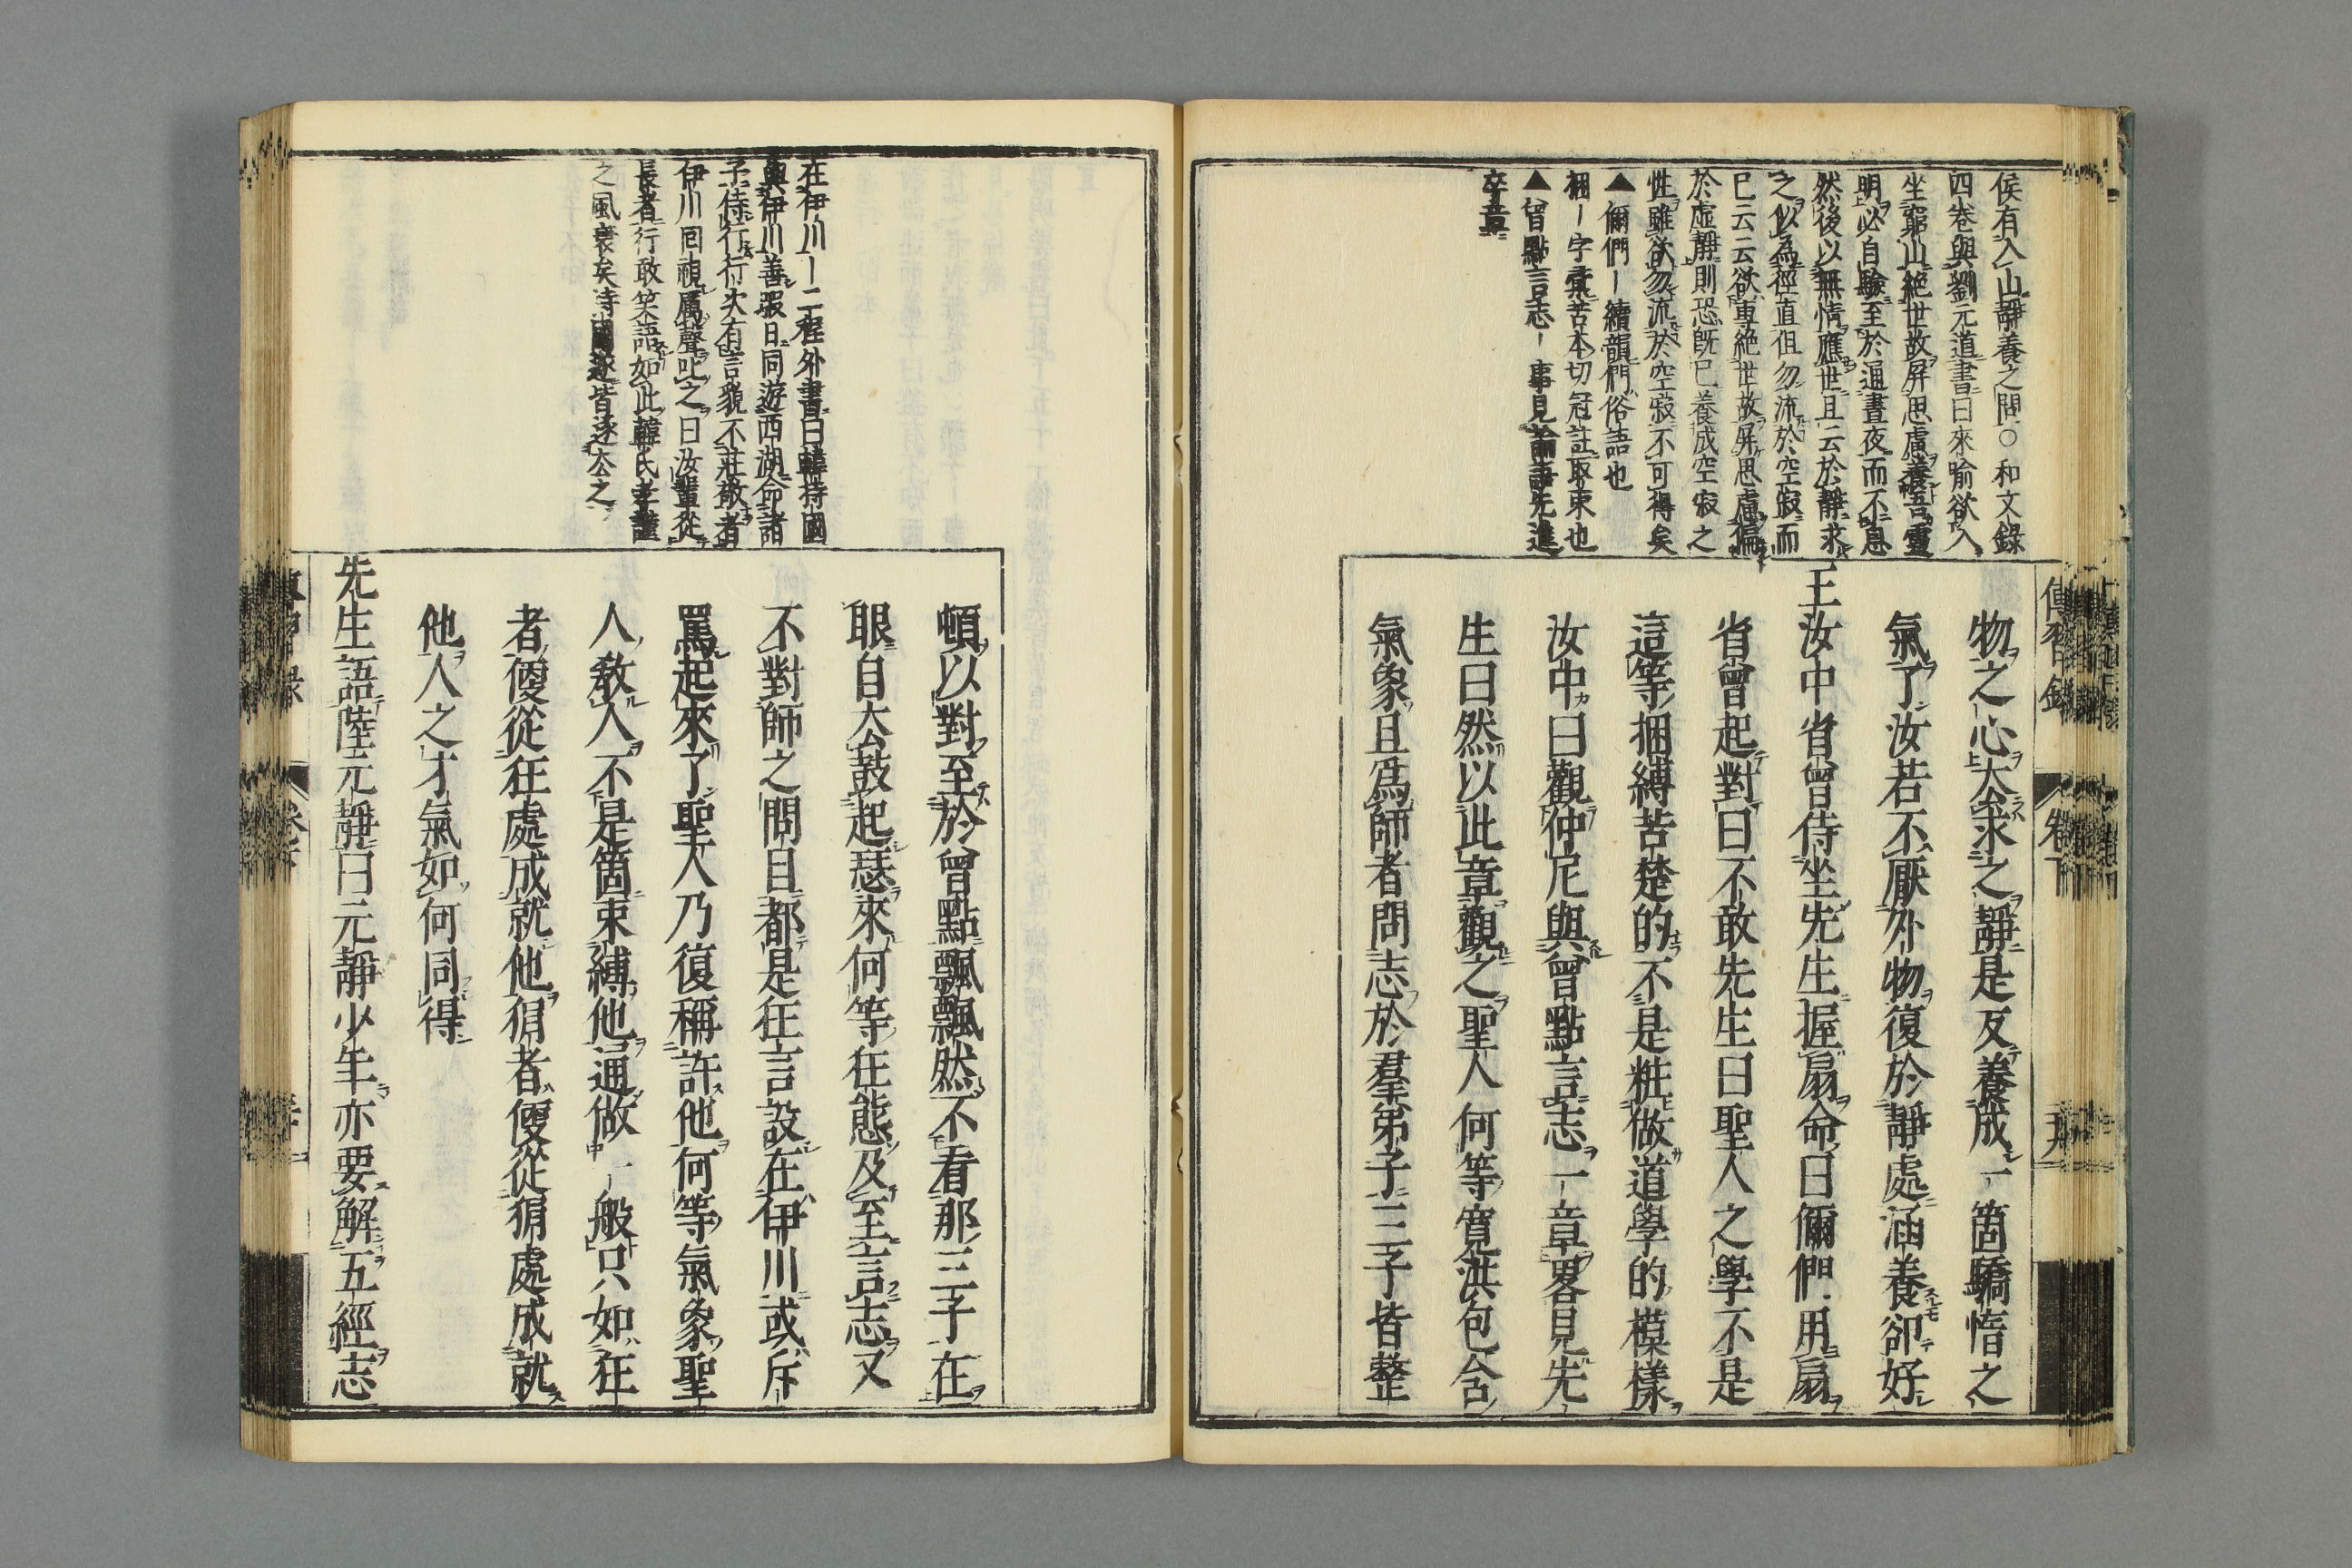 侯有入山靜養之問○和文錄
四卷與劉元道書曰來喻欲入
坐窮山絕世故屏思慮養吾靈
明必自驗至於通晝夜而不息
然後以無情應世且云於靜求
之似為徑直但勿流於空寂而
已云云欲專絕世故屏思慮偏
於虛靜則恐既已養成空寂之
性雖欲勿流於空寂不可得矣
▲儞們ー續韻們俗語也
梱ー字彙苦本切冠註取束也
▲曾點言志ー事見論語先進
卒章
物之心去求之靜是反養成一箇驕惰之
氣了汝若不厭外物復於靜處涵養卻好
王汝中省曾侍坐先生握扇命曰儞們用扇
省曾起對曰不敢先生曰聖人之學不是
這等捆縛苦楚的不是粧做道學的模樣
汝中曰觀仲尼與曾點言志一章畧見先
生曰然以此章觀之聖人何等寬洪包含
氣象且爲師者問志於羣弟子三子皆整
傳習錄
卷下
在伊川ー二程外書曰韓持國
與伊川善暇日同遊西湖命諸
子侍行行次有言貌不莊敬者
伊川回視厲聲叱之曰汝輩從
長者行敢笑語如此韓氏孝謹
之風衰矣持國遂皆逐去之
頓以對至於曾點飄飄然不看那三子在
眼自去鼓起瑟來何等狂態及至言志又
不對師之問目都是狂言設在伊川或斥
罵起來了聖人乃復稱許他何等氣象聖
人敎人不是箇束縛他通做一般只如狂
者便從狂處成就他狷者便從狷處成就
他人之才氣如何同得
先生語陸元靜曰元靜少年亦要解五經志